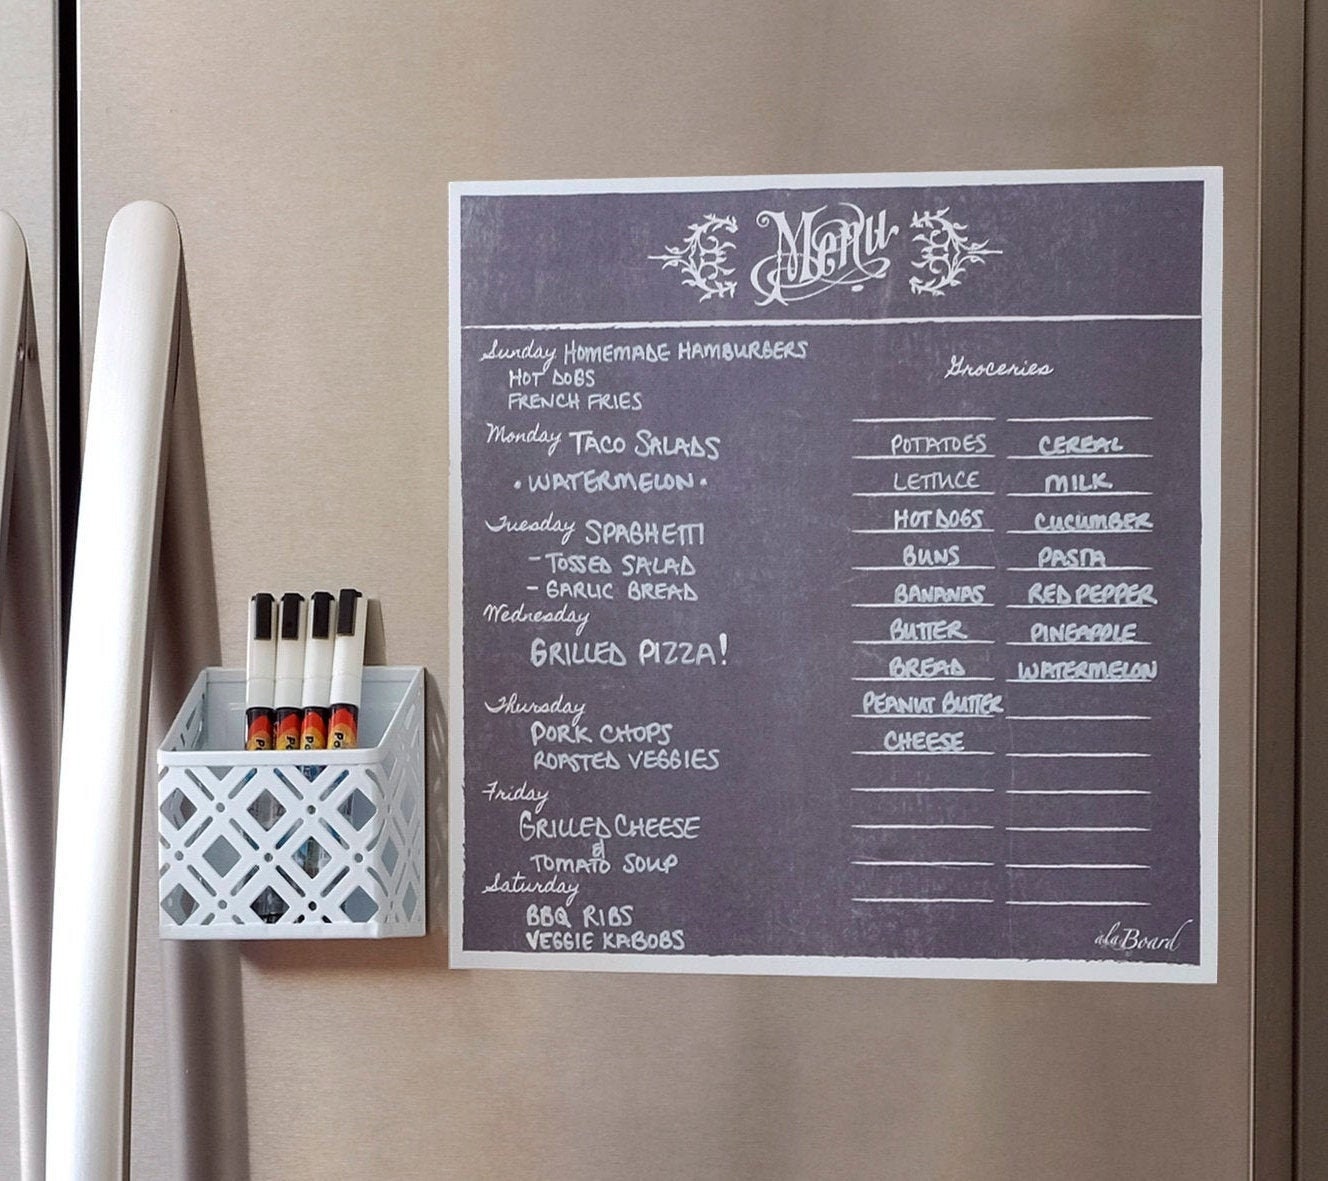 Menu
Sunday HOMEMADE HAMBURGERS
HOT DOGS
FRENCH FRIES
Monday TACO SALADS
• WATERMELON •
Tuesday SPAGHETTI
- TOSSED SALAD
- GARLIC BREAD
Wednesday
GRILLED PIZZA!
Thursday
PORK CHOPS
ROASTED VEGGIES
Friday
GRILLED CHEESE
&
TOMATO SOUP
Saturday
BBQ RIBS
VEGGIE KABOBS
Groceries
POTATOES
LETTUCE
HOT DOGS
BUNS
BANANAS
BUTTER
BREAD
PEANUT BUTTER
CHEESE
CEREAL
MILK
CUCUMBER
PASTA
RED PEPPER
PINEAPPLE
WATERMELON
alaBoard